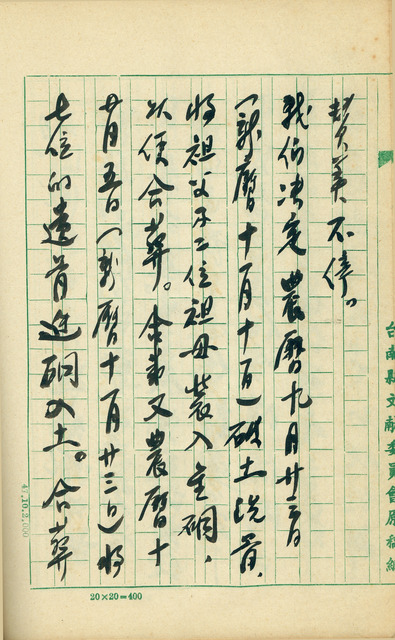 台南縣文獻委員會原稿紙
讚美不停。
我們决定農曆九月廿三日
(新曆十一月十一日)破土洗骨,
將祖父及二位祖母裝入金硐、
以便合葬。合葬又農曆十
月五日(新曆十一月廿三日)將
七位的遺骨進硐入土。合葬
47.10.2,000
20×20=400